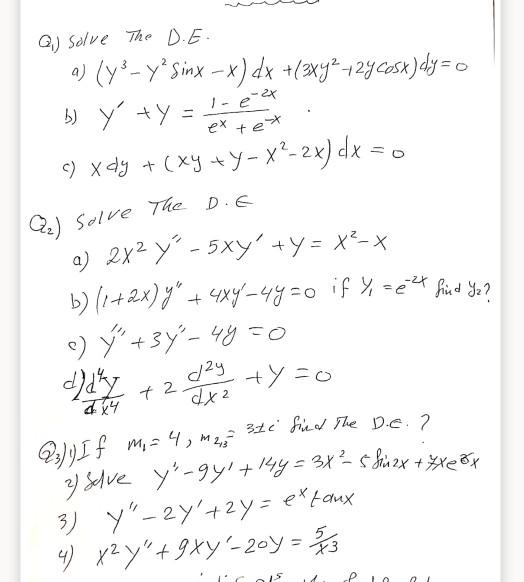 Q1) Solve The D.E.
a) (y³ - y² Sinx - x) dx + (3xy² + 2y cosx) dy = 0
b) y' + y = (1 - e^-2x) / (e^x + e^-x) .
c) x dy + (xy + y - x² - 2x) dx = 0
Q2) Solve The D.E
a) 2x² y" - 5xy' + y = x² - x
b) (1+2x) y" + 4xy' - 4y = 0 if y₁ = e^-2x find y₂?
c) y''' + 3y" - 4y = 0
d) d⁴y/dx⁴ + 2 d²y/dx² + y = 0
Q3) 1) If m₁ = 4, m₂,₃ = 3±i find The D.E. ?
2) Solve y" - 9y' + 14y = 3x² - 5 Sin2x + 7xe^6x
3) y" - 2y' + 2y = e^x tanx
4) x² y" + 9xy' - 20y = 5/x³